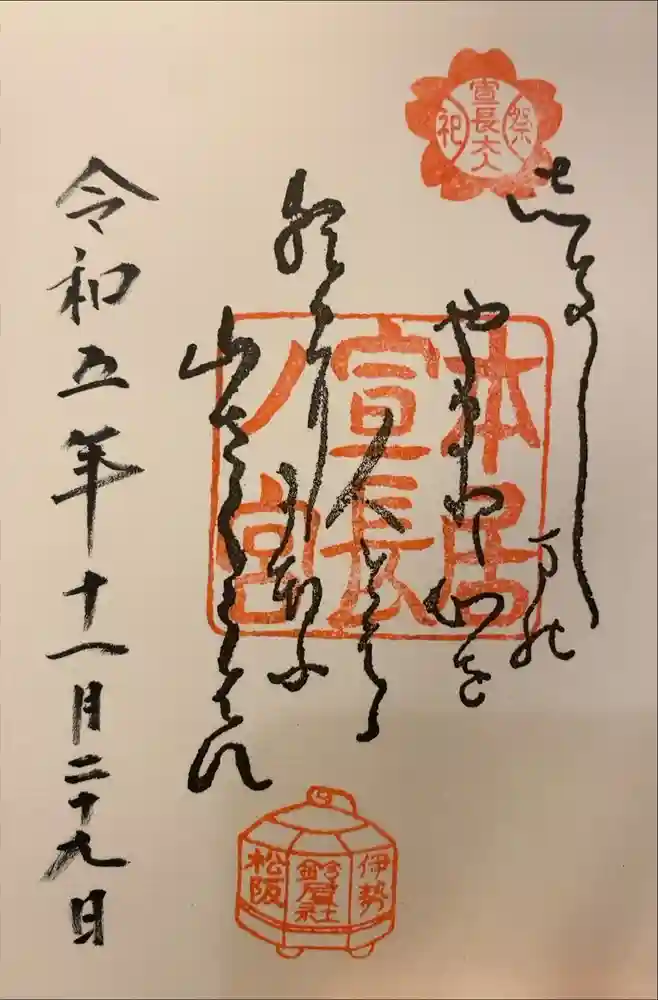 祭
宣長大人
祀
しきしまの
やまと心を
人とはゝ
朝日ににほふ
山さくらはな
本居
宣長
ノ宮
伊勢
鈴屋社
松阪
令和五年十一月二十九日